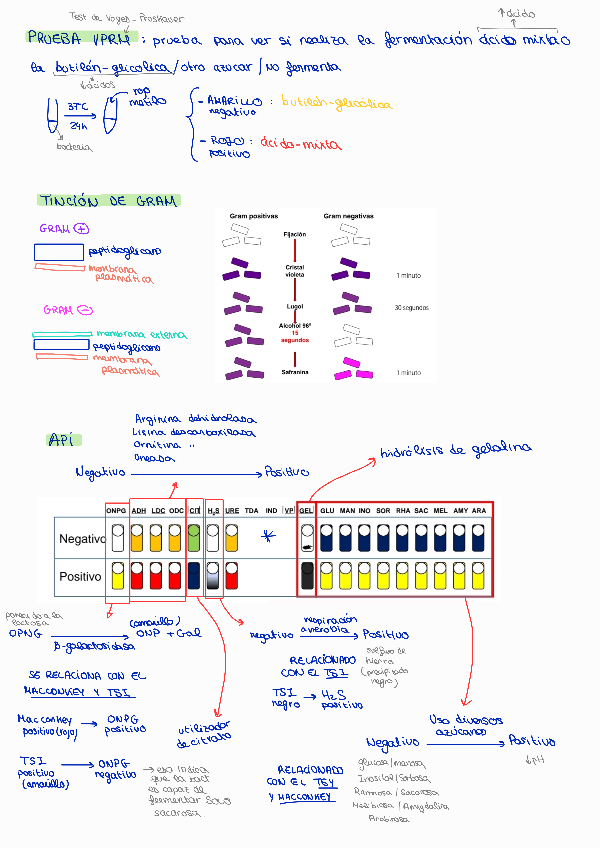 Test de Voges-Proskauer
↑ácido
PRUEBA VPRM : prueba para ver si realiza la fermentación ácido mixta o
la butilén-glicolica / otro azucar / No fermenta
↓ácidos
37ºC
24h
rojo
metilo
bacteria
- AMARILLO : butilén-glicólica
negativo
- ROJO : ácido-mixta
positivo
TINCIÓN DE GRAM
GRAM +
peptidoglicano
membrana
plasmática
GRAM -
membrana externa
peptidoglicano
membrana
plasmática
Gram positivas
Gram negativas
Fijación
Cristal
violeta
1 minuto
Lugol
30 segundos
Alcohol 96º
15
segundos
Safranina
1 minuto
API
Arginina dehidrolasa
Lisina descarboxilasa
Ornitina "
Ureasa
Negativo → Positivo
hidrólisis de gelatina
ONPG ADH LDC ODC CIT H2S URE TDA IND VP GEL GLU MAN INO SOR RHA SAC MEL AMY ARA
Negativo *
Positivo
parecido a la
lactosa
OPNG → (amarillo) ONP + Gal
β-galactosidasa
SE RELACIONA CON EL
MACCONKEY Y TSI
MacConkey → ONPG
positivo (rojo) positivo
TSI → ONPG
positivo negativo
(amarillo)
→ eso indica
que la bact
es capaz de
fermentar solo
sacarosa
utilizador
de citrato
negativo → Positivo
respiración
anaerobia
sulfuro de
hierro
(precipitado
negro)
RELACIONADO
CON EL TSI
TSI → H2S
negro positivo
Uso diversos
azúcares
Negativo → Positivo
↓pH
RELACIONADO
CON EL TSI
Y MACCONKEY
glucosa/manosa
Inositol/Sorbosa
Ramnosa/Sacarosa
Melibiosa/Amygdalina
Arabinosa